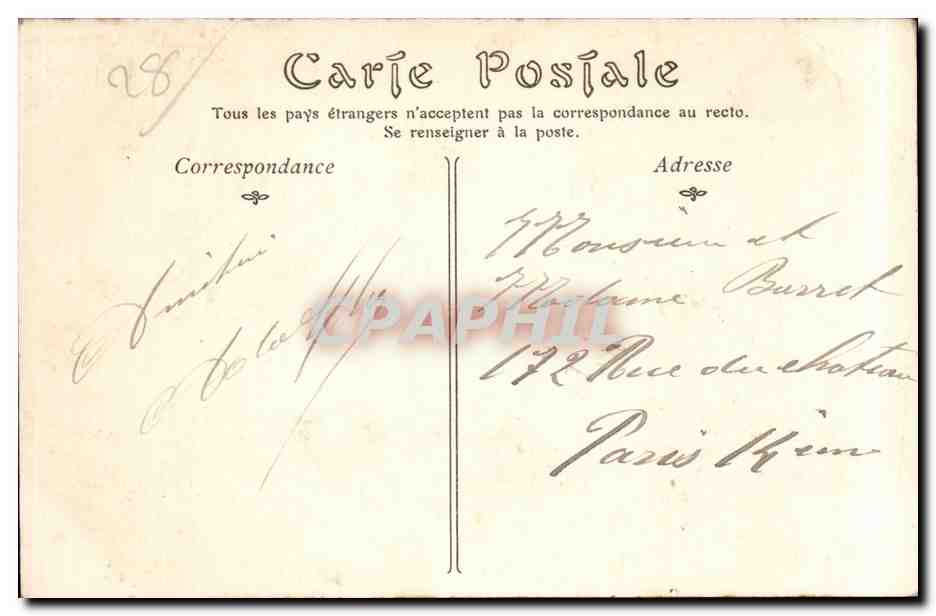 28
Carte Postale
Tous les pays étrangers n'acceptent pas la correspondance au recto.
Se renseigner à la poste.
Correspondance
Adresse
Monsieur et
Madame Burret
172 Rue du chateau
Paris 14 eme
CPAPHIL